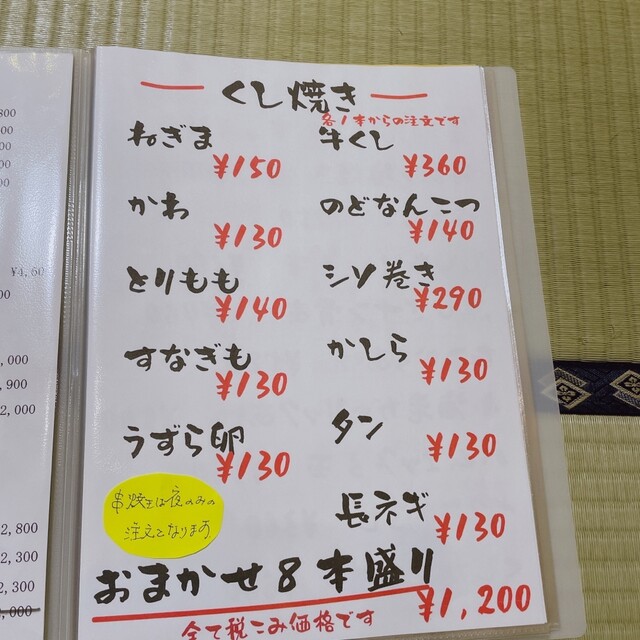 くし焼き
各1本からの注文です
ねぎま
¥150
かわ
¥130
とりもも
¥140
すなぎも
¥130
うずら卵
¥130
牛くし
¥360
のどなんこつ
¥140
シソ巻き
¥290
かしら
¥130
タン
¥130
長ネギ
¥130
串焼きは夜のみの
注文となります
おまかせ8本盛り
¥1,200
全て税こみ価格です
800
¥4,60
,000
,900
2,000
2,800
2,300
2,300